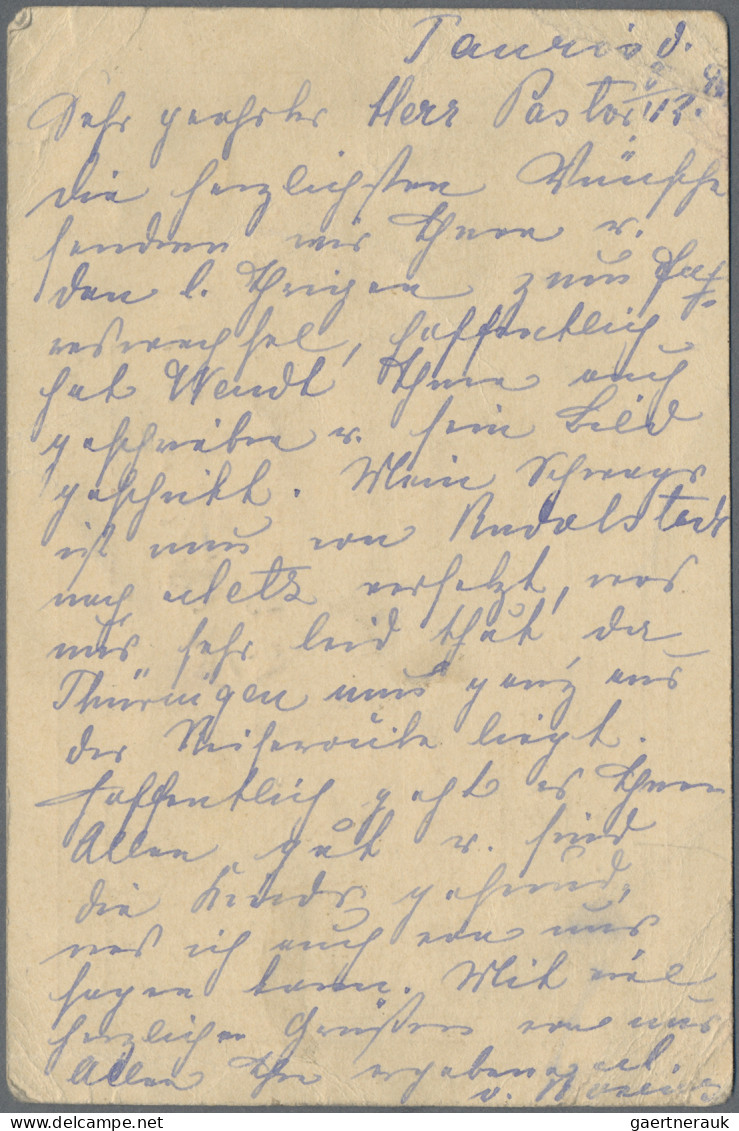 Tauris d.
Sehr geehrter Herr Pastor
die herzlichsten Wünsche
senden wir Ihnen u.
den l. Ihrigen zum Jah-
reswechsel, hoffentlich
hat Wendt Ihnen auch
geschrieben u. sein Bild
geschickt. Mein Schwager
ist nun von Rudolstadt
nach Metz versetzt, was
uns sehr leid thut da
Thüringen nun ganz aus
der Reiseroute liegt.
Hoffentlich geht es Ihnen
Allen gut u. sind
die Kinder gesund,
was ich auch von uns
sagen kann. Mit viel
herzlichen Grüßen von uns
Allen Ihr ergebenst
v.
gaertnerauk